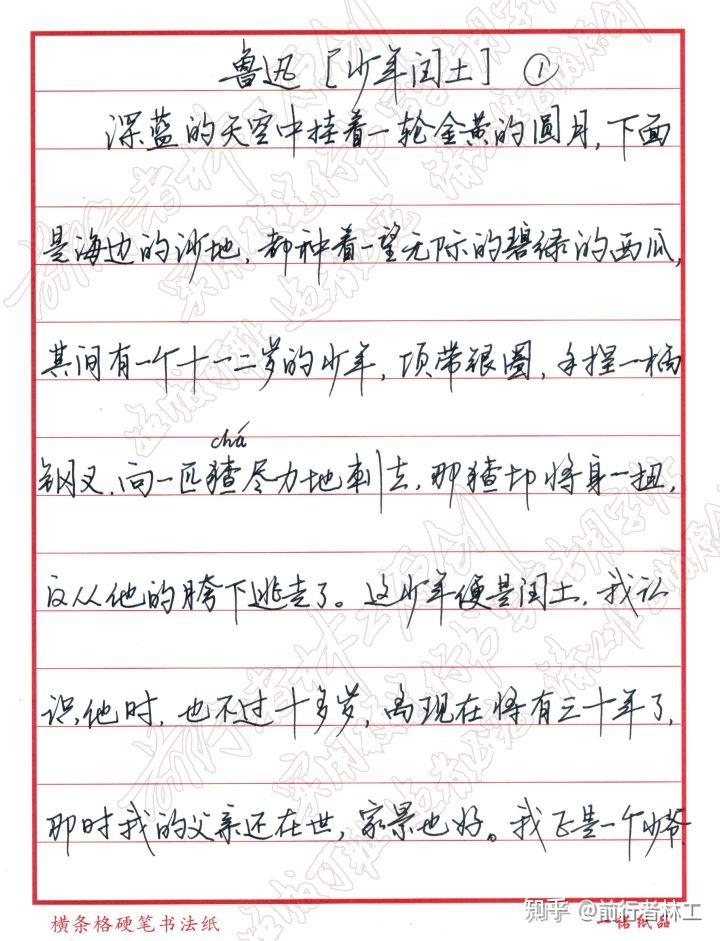 鲁迅 [少年闰土] ①
深蓝的天空中挂着一轮金黄的圆月,下面
是海边的沙地,都种着一望无际的碧绿的西瓜,
其间有一个十一二岁的少年,项带银圈,手捏一柄
chá
钢叉,向一匹猹尽力地刺去,那猹却将身一扭,
反从他的胯下逃走了。这少年便是闰土,我认
识他时,也不过十多岁,离现在将有三十年了,
那时我的父亲还在世,家景也好。我正是一个少爷
知乎 @前行者林工
横条格硬笔书法纸 一诺纸品